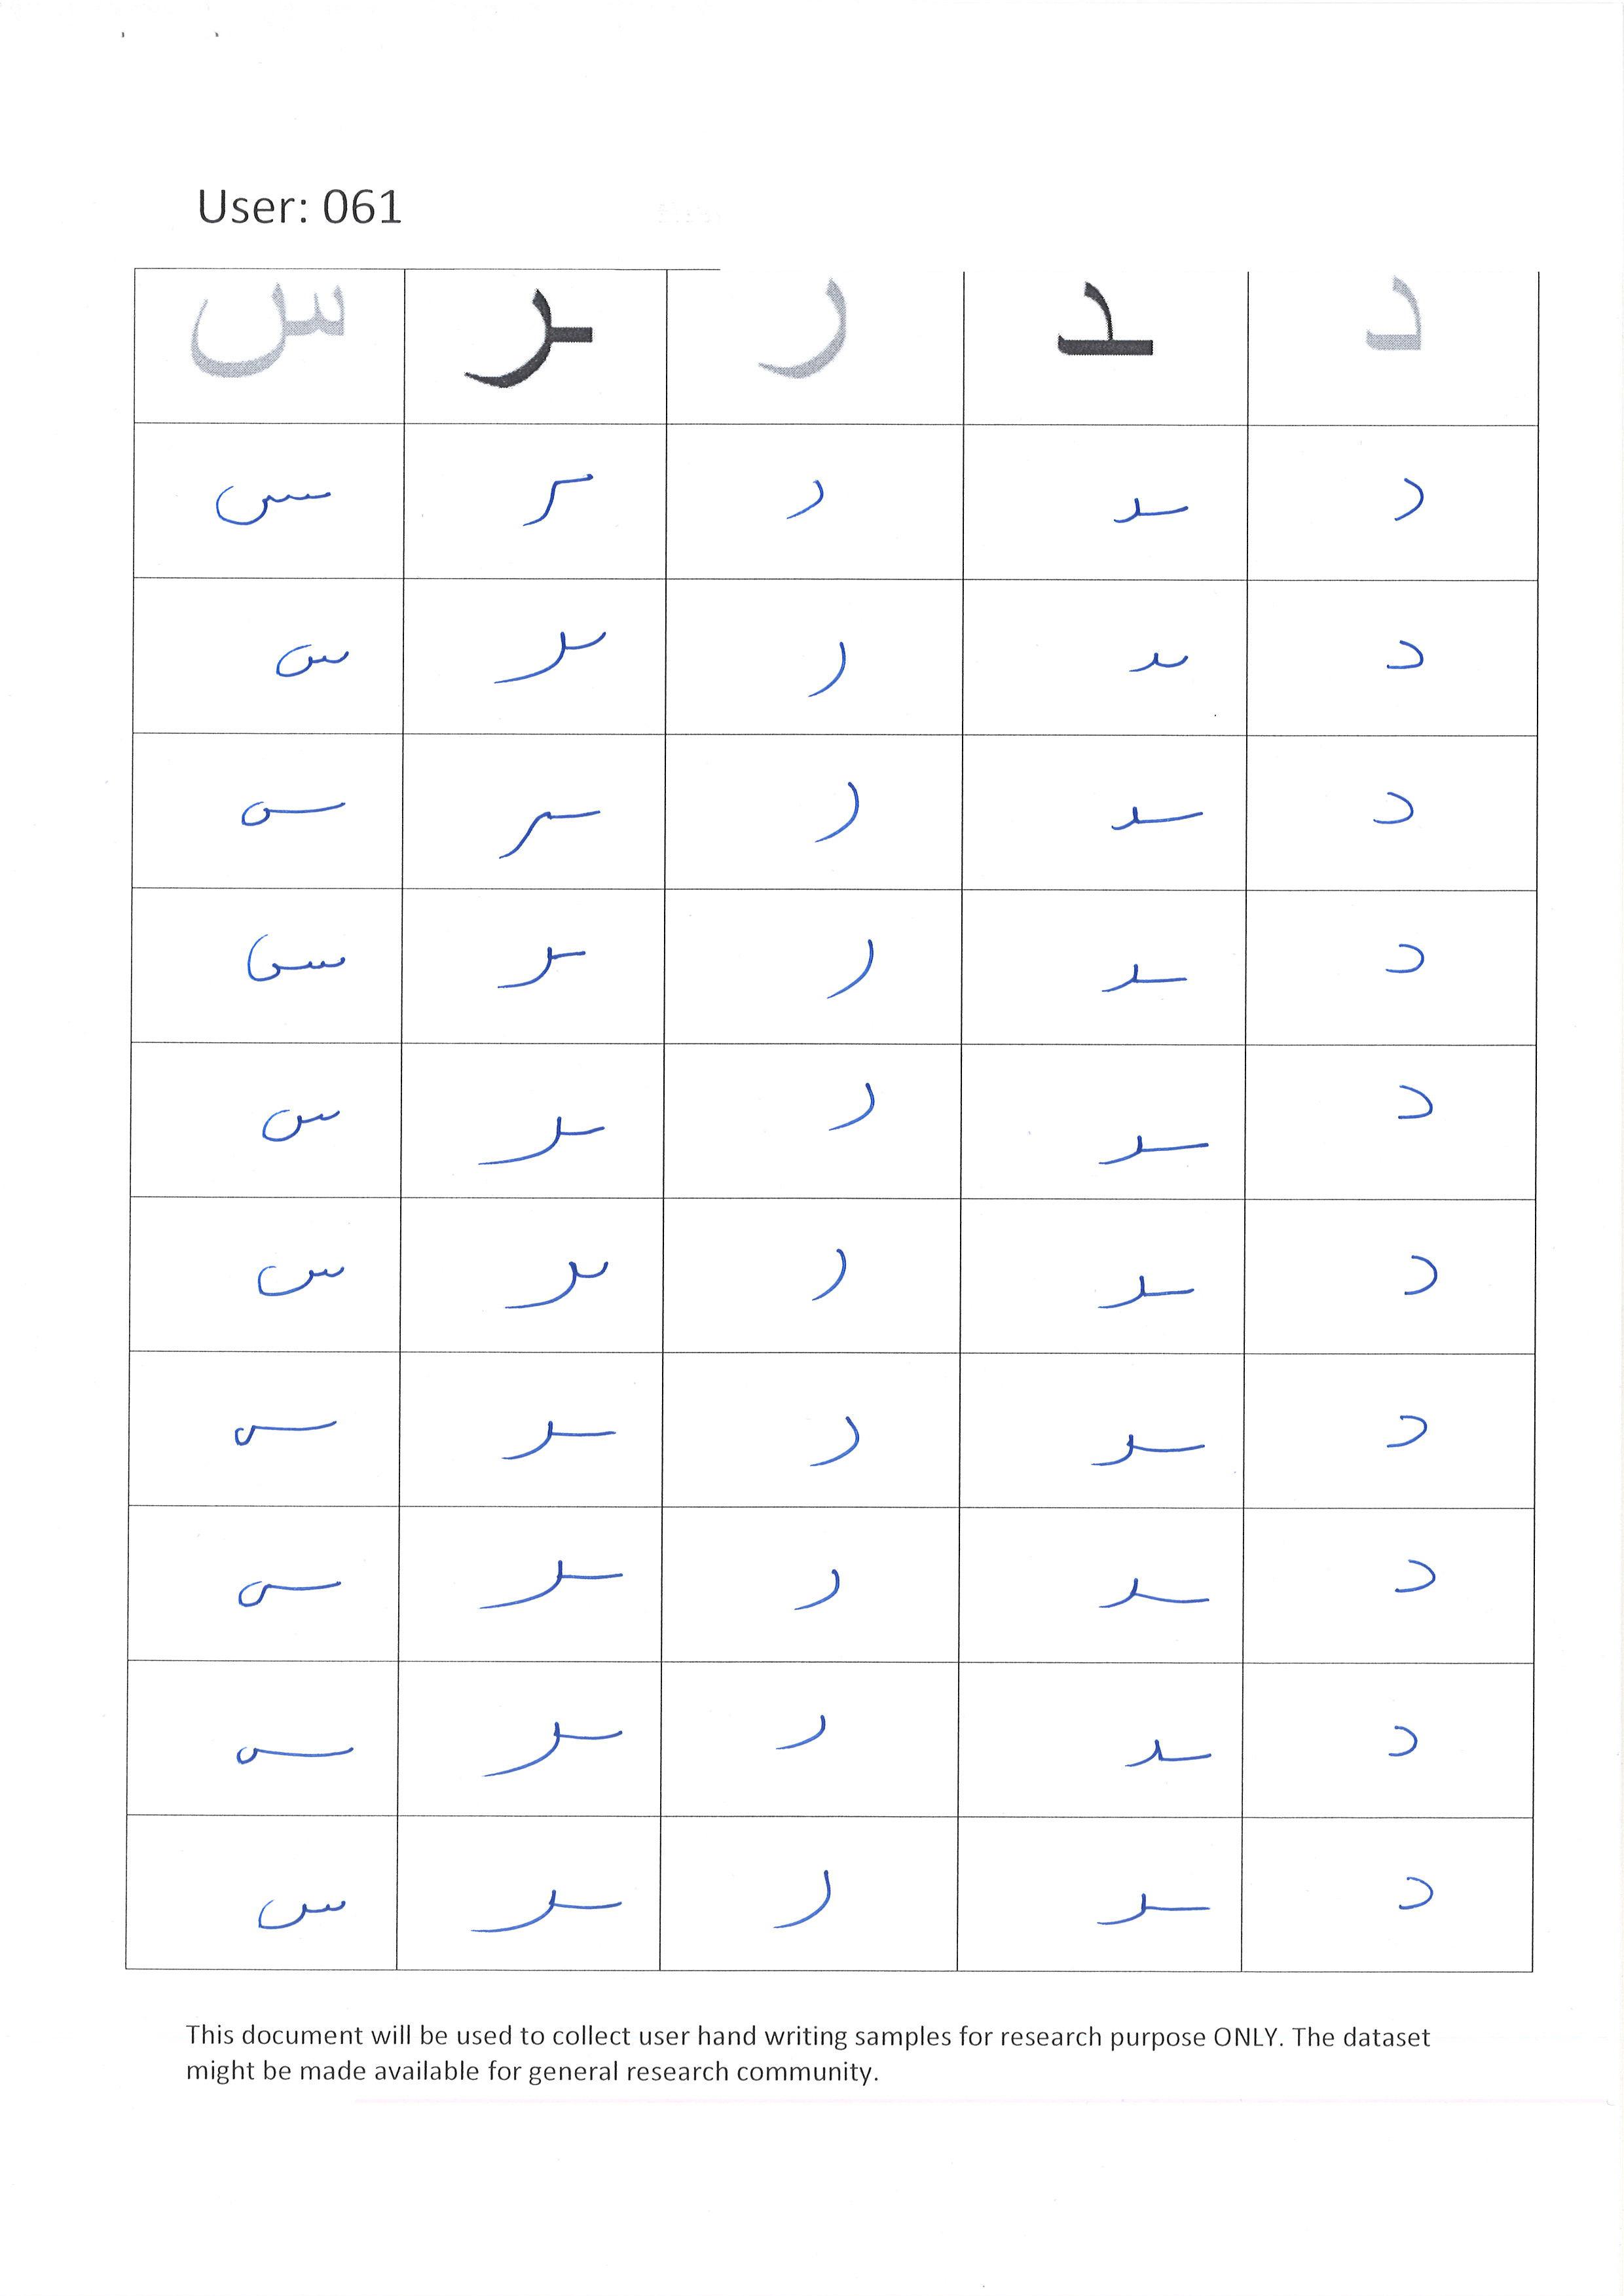 User: 061
د ـد ر ـر س
د ـد ر ـر س
د ـد ر ـر س
د ـد ر ـر س
د ـد ر ـر س
د ـد ر ـر س
د ـد ر ـر س
د ـد ر ـر س
د ـد ر ـر س
د ـد ر ـر س
د ـد ر ـر س
This document will be used to collect user hand writing samples for research purpose ONLY. The dataset
might be made available for general research community.